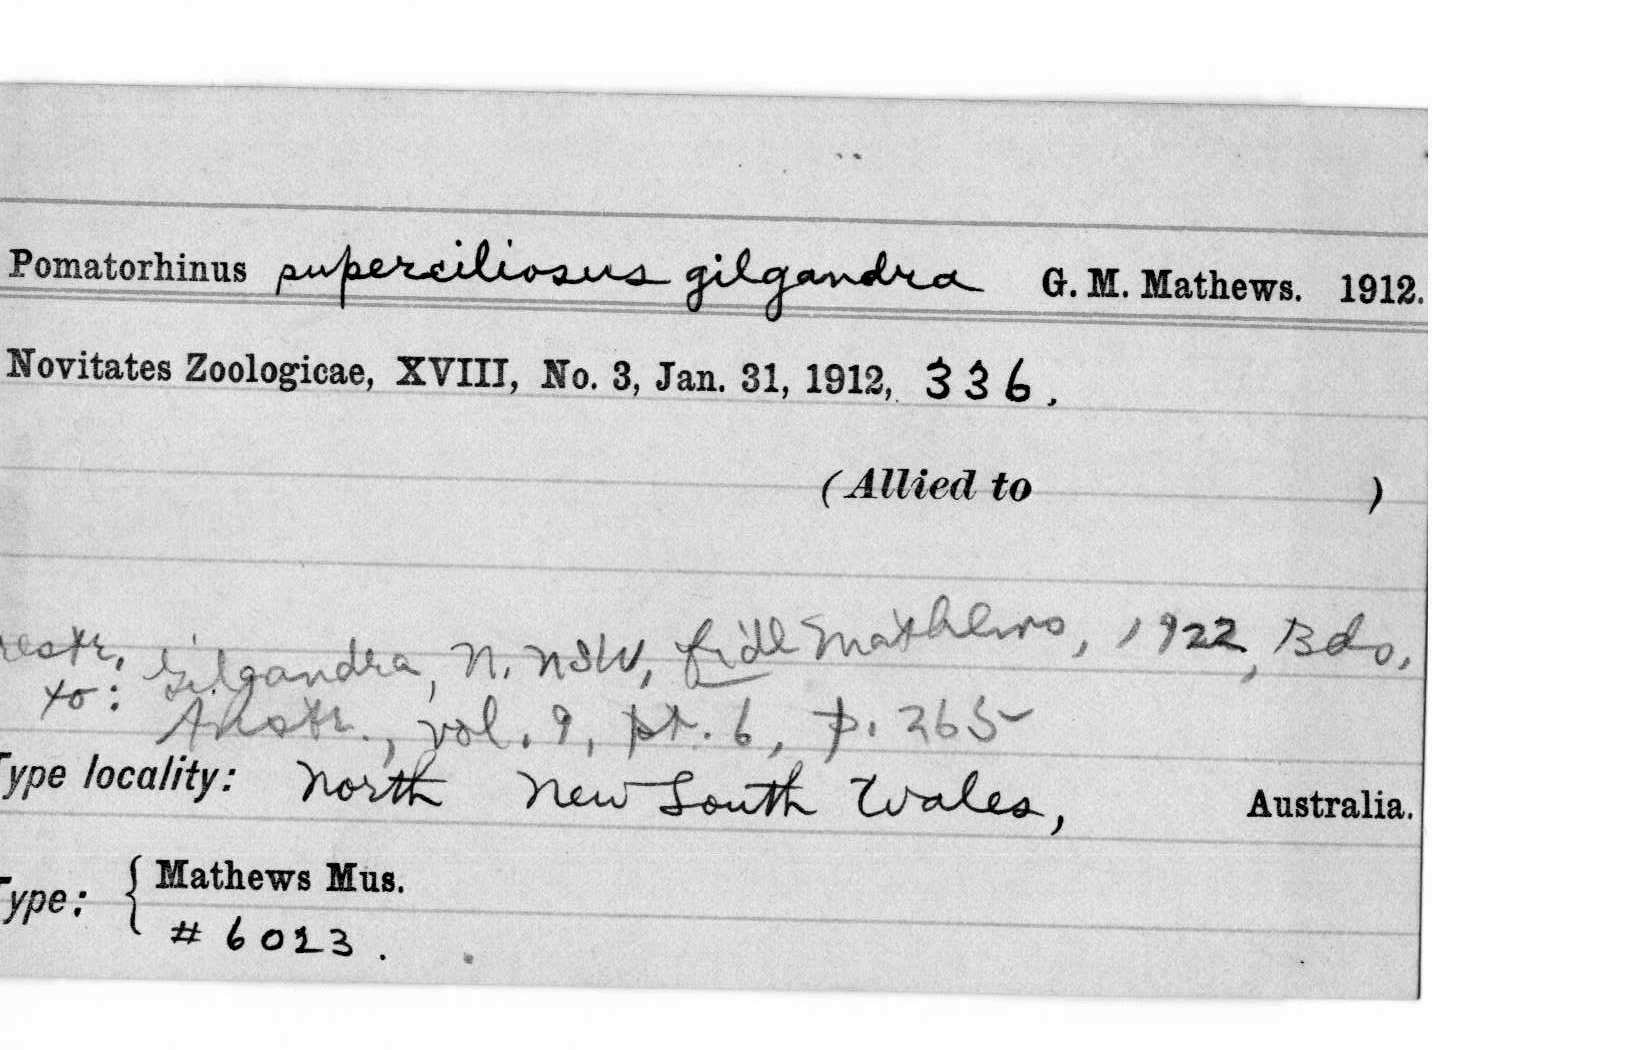 Pomatorhinus superciliosus gilgandra G. M. Mathews. 1912.
Novitates Zoologicae, XVIII, No. 3, Jan. 31, 1912, 336.
(Allied to )
restr. Gilgandra, N. NSW, fide Mathews, 1922, Bds,
to: Austr., vol. 9, pt. 6, p. 265
Type locality: North New South Wales, Australia.
Type: { Mathews Mus.
# 6023.